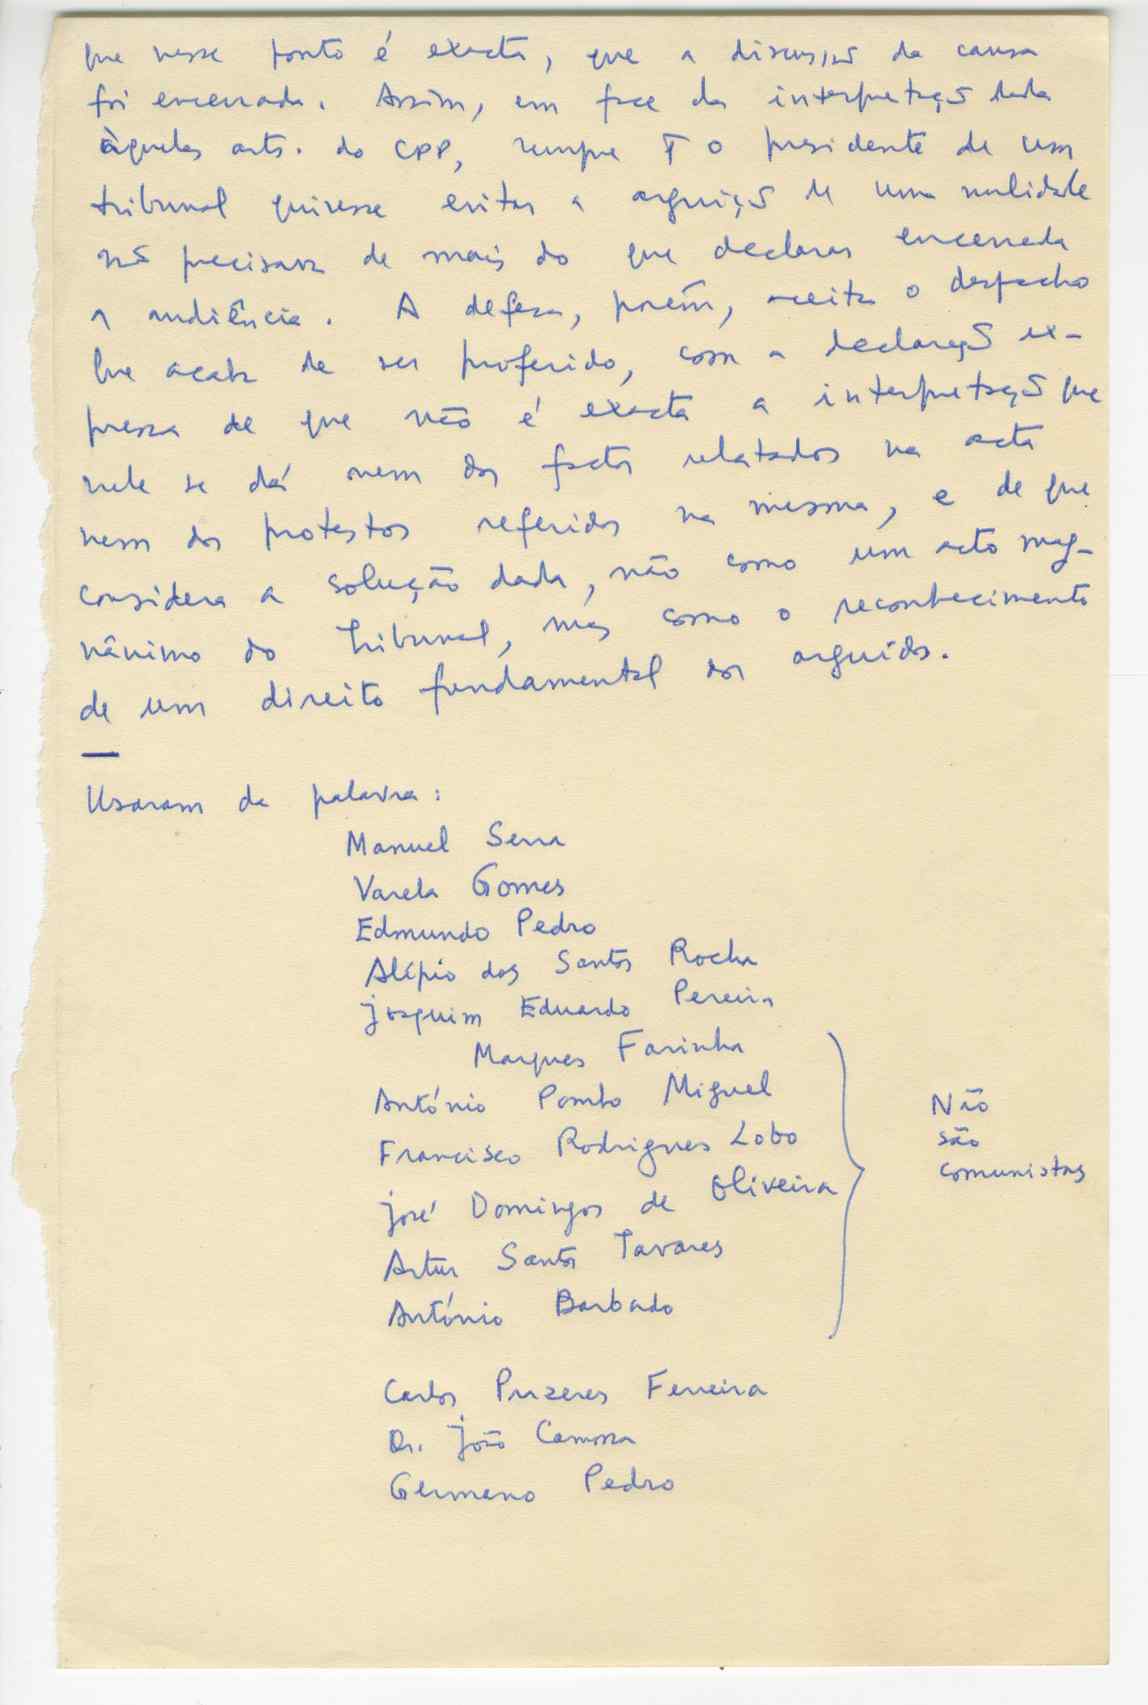 que nesse ponto é exacta, que a discussão da causa
foi encerrada. Assim, em face da interpretação dada
àqueles arts. do CPP, sempre q o presidente de um
tribunal quisesse evitar a arguição de uma nulidade
não precisava de mais do que declarar encerrada
a audiência. A defesa, porém, aceita o despacho
que acaba de ser proferido, com a declaração ex-
pressa de que não é exacta a interpretação que
nele se dá nem dos factos relatados na acta
nem dos protestos referidos na mesma, e de que
considera a solução dada, não como um acto mag-
nânimo do Tribunal, mas como o reconhecimento
de um direito fundamental dos arguidos.
—
Usaram da palavra:
Manuel Serra
Varela Gomes
Edmundo Pedro
Alípio dos Santos Rocha
Joaquim Eduardo Pereira
Marques Farinha
António Pombo Miguel
Francisco Rodrigues Lobo
José Domingos de Oliveira
Artur Santos Tavares
António Barbado
Não
são
comunistas
Carlos Prazeres Ferreira
Dr. João Camossa
Germano Pedro